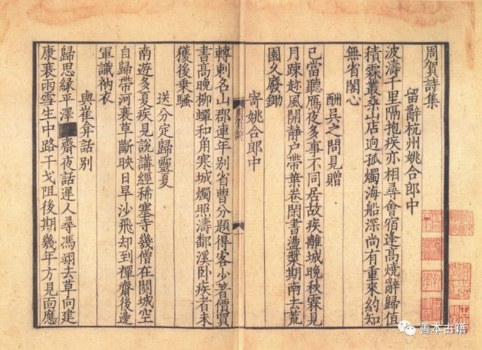 周賀詩集
留辭杭州姚合郎中
波濤千里隔抱疾亦相尋會宿逢高燒辭歸值
積霖叢桑山店迥孤燭海船深尚有重來約知
無省閣心
酬吳之問見贈
已當聽鴈夜多事不同居故疾離城晚秋霖見
月疎趁風開靜戶帶葉卷閑書盪槳期南去荒
園久廢鋤
寄姚合郎中
轉刺名山郡連年別省曹分題得客少著價買
書高晚柳蟬和角寒城燭照濤鄱溪臥疾者未
獲後乘騷
送分定歸靈夏
南遊多夏疾見說講經稀塞寺幾僧在關城空
自歸帶河衰草斷映日旱沙飛却到禪齋後邊
軍識衲衣
與崔弇話別
歸思緣平澤幽齋夜話遲人尋馮翊去草向建
康衰雨雪生中路干戈阻後期幾年方見面應
善本古籍